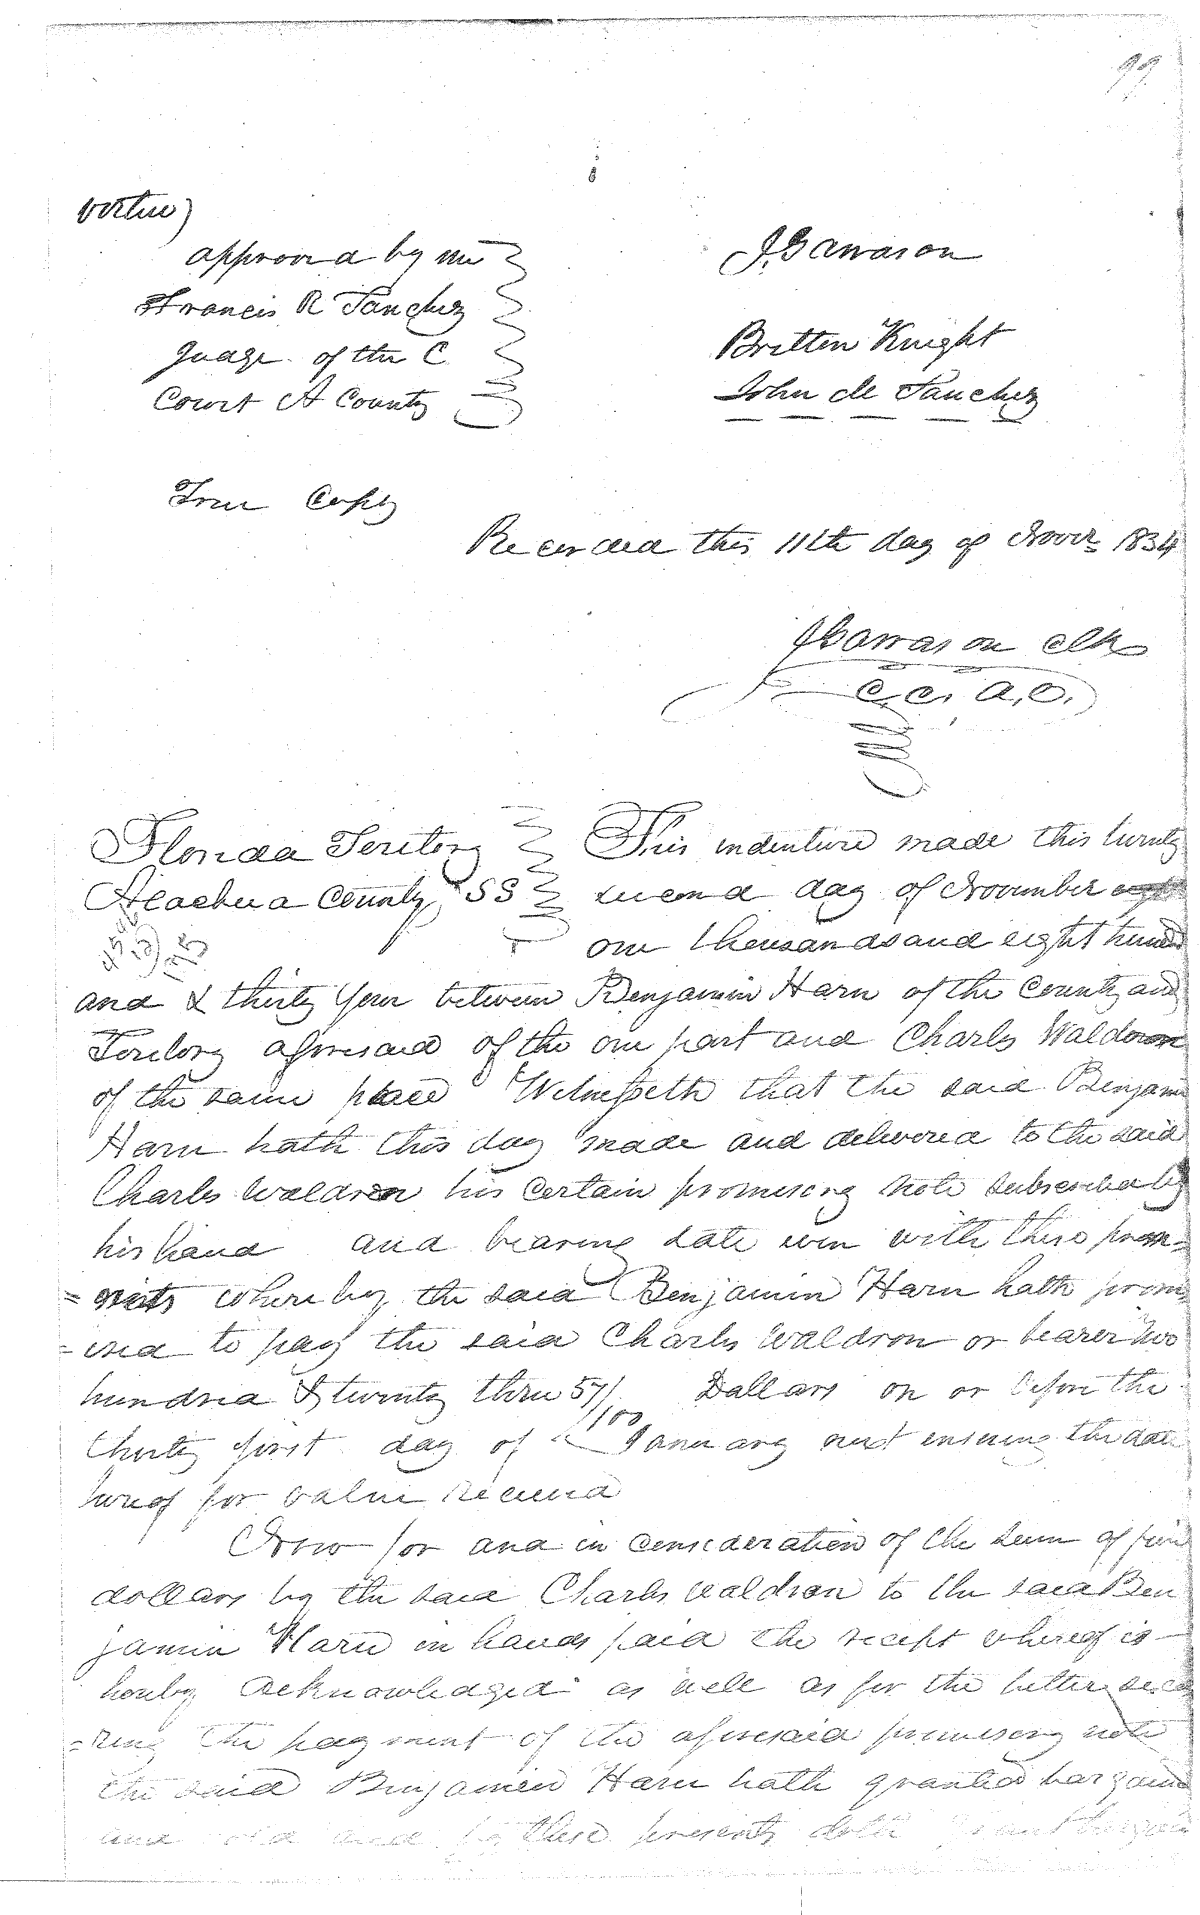 99
virtue)
approved by me
J. Garrason
Francis R Sanchez
Britten Knight
Judge of the C
Court A County
John de Sanchez
True Copy
Recorded this 11th day of Novr 1834
J Garrason Clk
C. C. A. C.
Florida Teritory This indenture made this twenty
Alachua County SS second day of November
one thousand and eight hund
and & thirty four between Benjamin Harn of the County and
Teritory aforesaid of the one part and Charles Waldron
of the same place Witnesseth that the said Benjami
Harn hath this day made and delivered to the said
Charles Waldron his certain promisory note subscribed by
his hand and bearing date even with these pres-
=ents whereby the said Benjamin Harn hath prom
-ised to pay the said Charles Waldron or bearer two
hundred & twenty three 57/100 Dollars on or before the
thirty first day of January next ensuing the date
hereof for value received
Now for and in consideration of the sum of five
dollars by the said Charles Waldron to the said Ben
jamin Harn in hands paid the receipt whereof is
hereby acknowledged as well as for the better secu
=ring the payment of the aforesaid promisory note
the said Benjamin Harn hath granted bargained
and sold and by these presents doth grant bargain